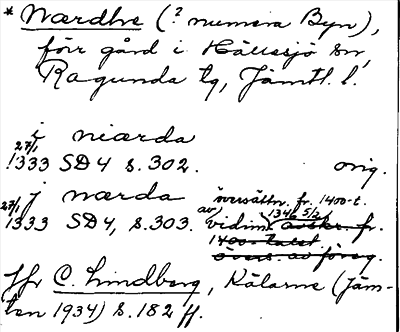 * Nærdhe (? numera Byn),
förr gård i Hällesjö sn,
Ragunda tg, Jämtl. l.
i niærda
27/1 1333 SD 4 s. 302. orig.
j nærda översättn. fr. 1400-t.
27/1 1333 SD 4, s. 303. av vidim. 1346 5/2 avskr. fr.
1400-talet
övers. av föreg.
Jfr C. Lindberg, Kälarne (Jäm-
ten 1934) s. 182 ff.